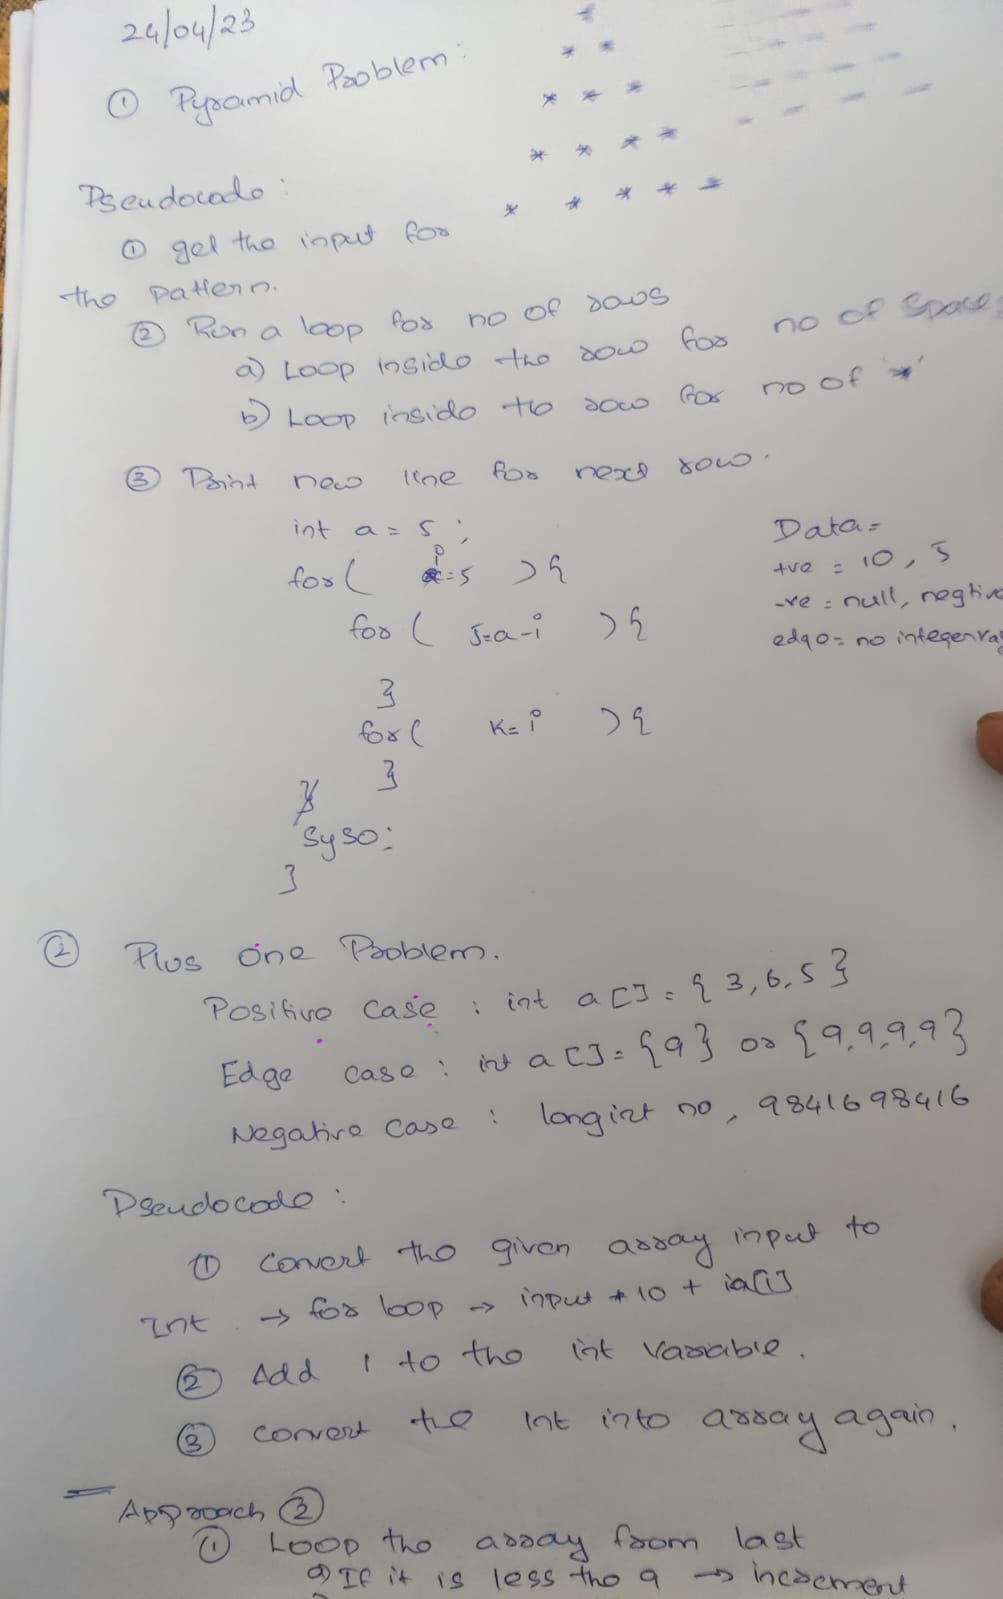 24/04/23
① Pyramid Problem :
*
* *
* * *
* * * *
* * * * *
Pseudocode :
① get the input for
the pattern.
② Run a loop for no of rows
a) Loop inside the row for no of Space
b) Loop inside to row for no of '*'
③ Print new line for next row.
int a = 5 ;
for ( i=5 ) {
for ( j=a-i ) {
}
for ( k=i ) {
}
Syso:
}
Data =
+ve = 10, 5
-ve = null, negtive
edge = no integer
② Plus One Problem.
Positive Case : int a[] = {3,6,5}
Edge case : int a[] = {9} or {9,9,9,9}
Negative case : long int no, 9841698416
Pseudocode :
① Convert the given array input to
Int → for loop → input * 10 + ia[i]
② Add 1 to the int variable.
③ convert the Int into array again.
Approach ②
① Loop the array from last
a) If it is less the 9 → increment